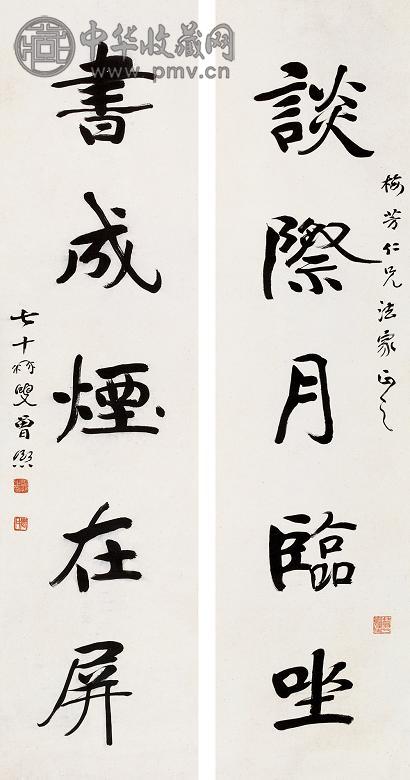 中华收藏网
www.pmv.cn
梅芳仁兄法家正之
談際月臨坐
書成煙在屏
七十叟曾熙